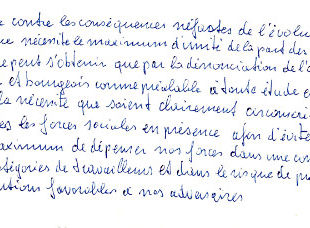 contre les conséquences néfastes de l'évolu
nécessite le maximum d'unité de la part des
peut s'obtenir que par la dénonciation de l'
et bourgeois comme préalable à toute étude
la nécessité que soient clairement circonscri
les forces sociales en présence afin d'évite
maximum de dépenser nos forces dans une
catégories de travailleurs et dans le risque de
utions favorables à nos adversaires